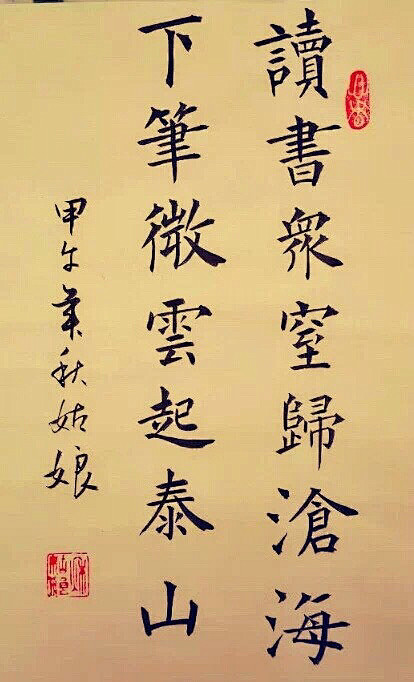 讀書衆壑歸滄海
下筆微雲起泰山
甲午年秋姑娘